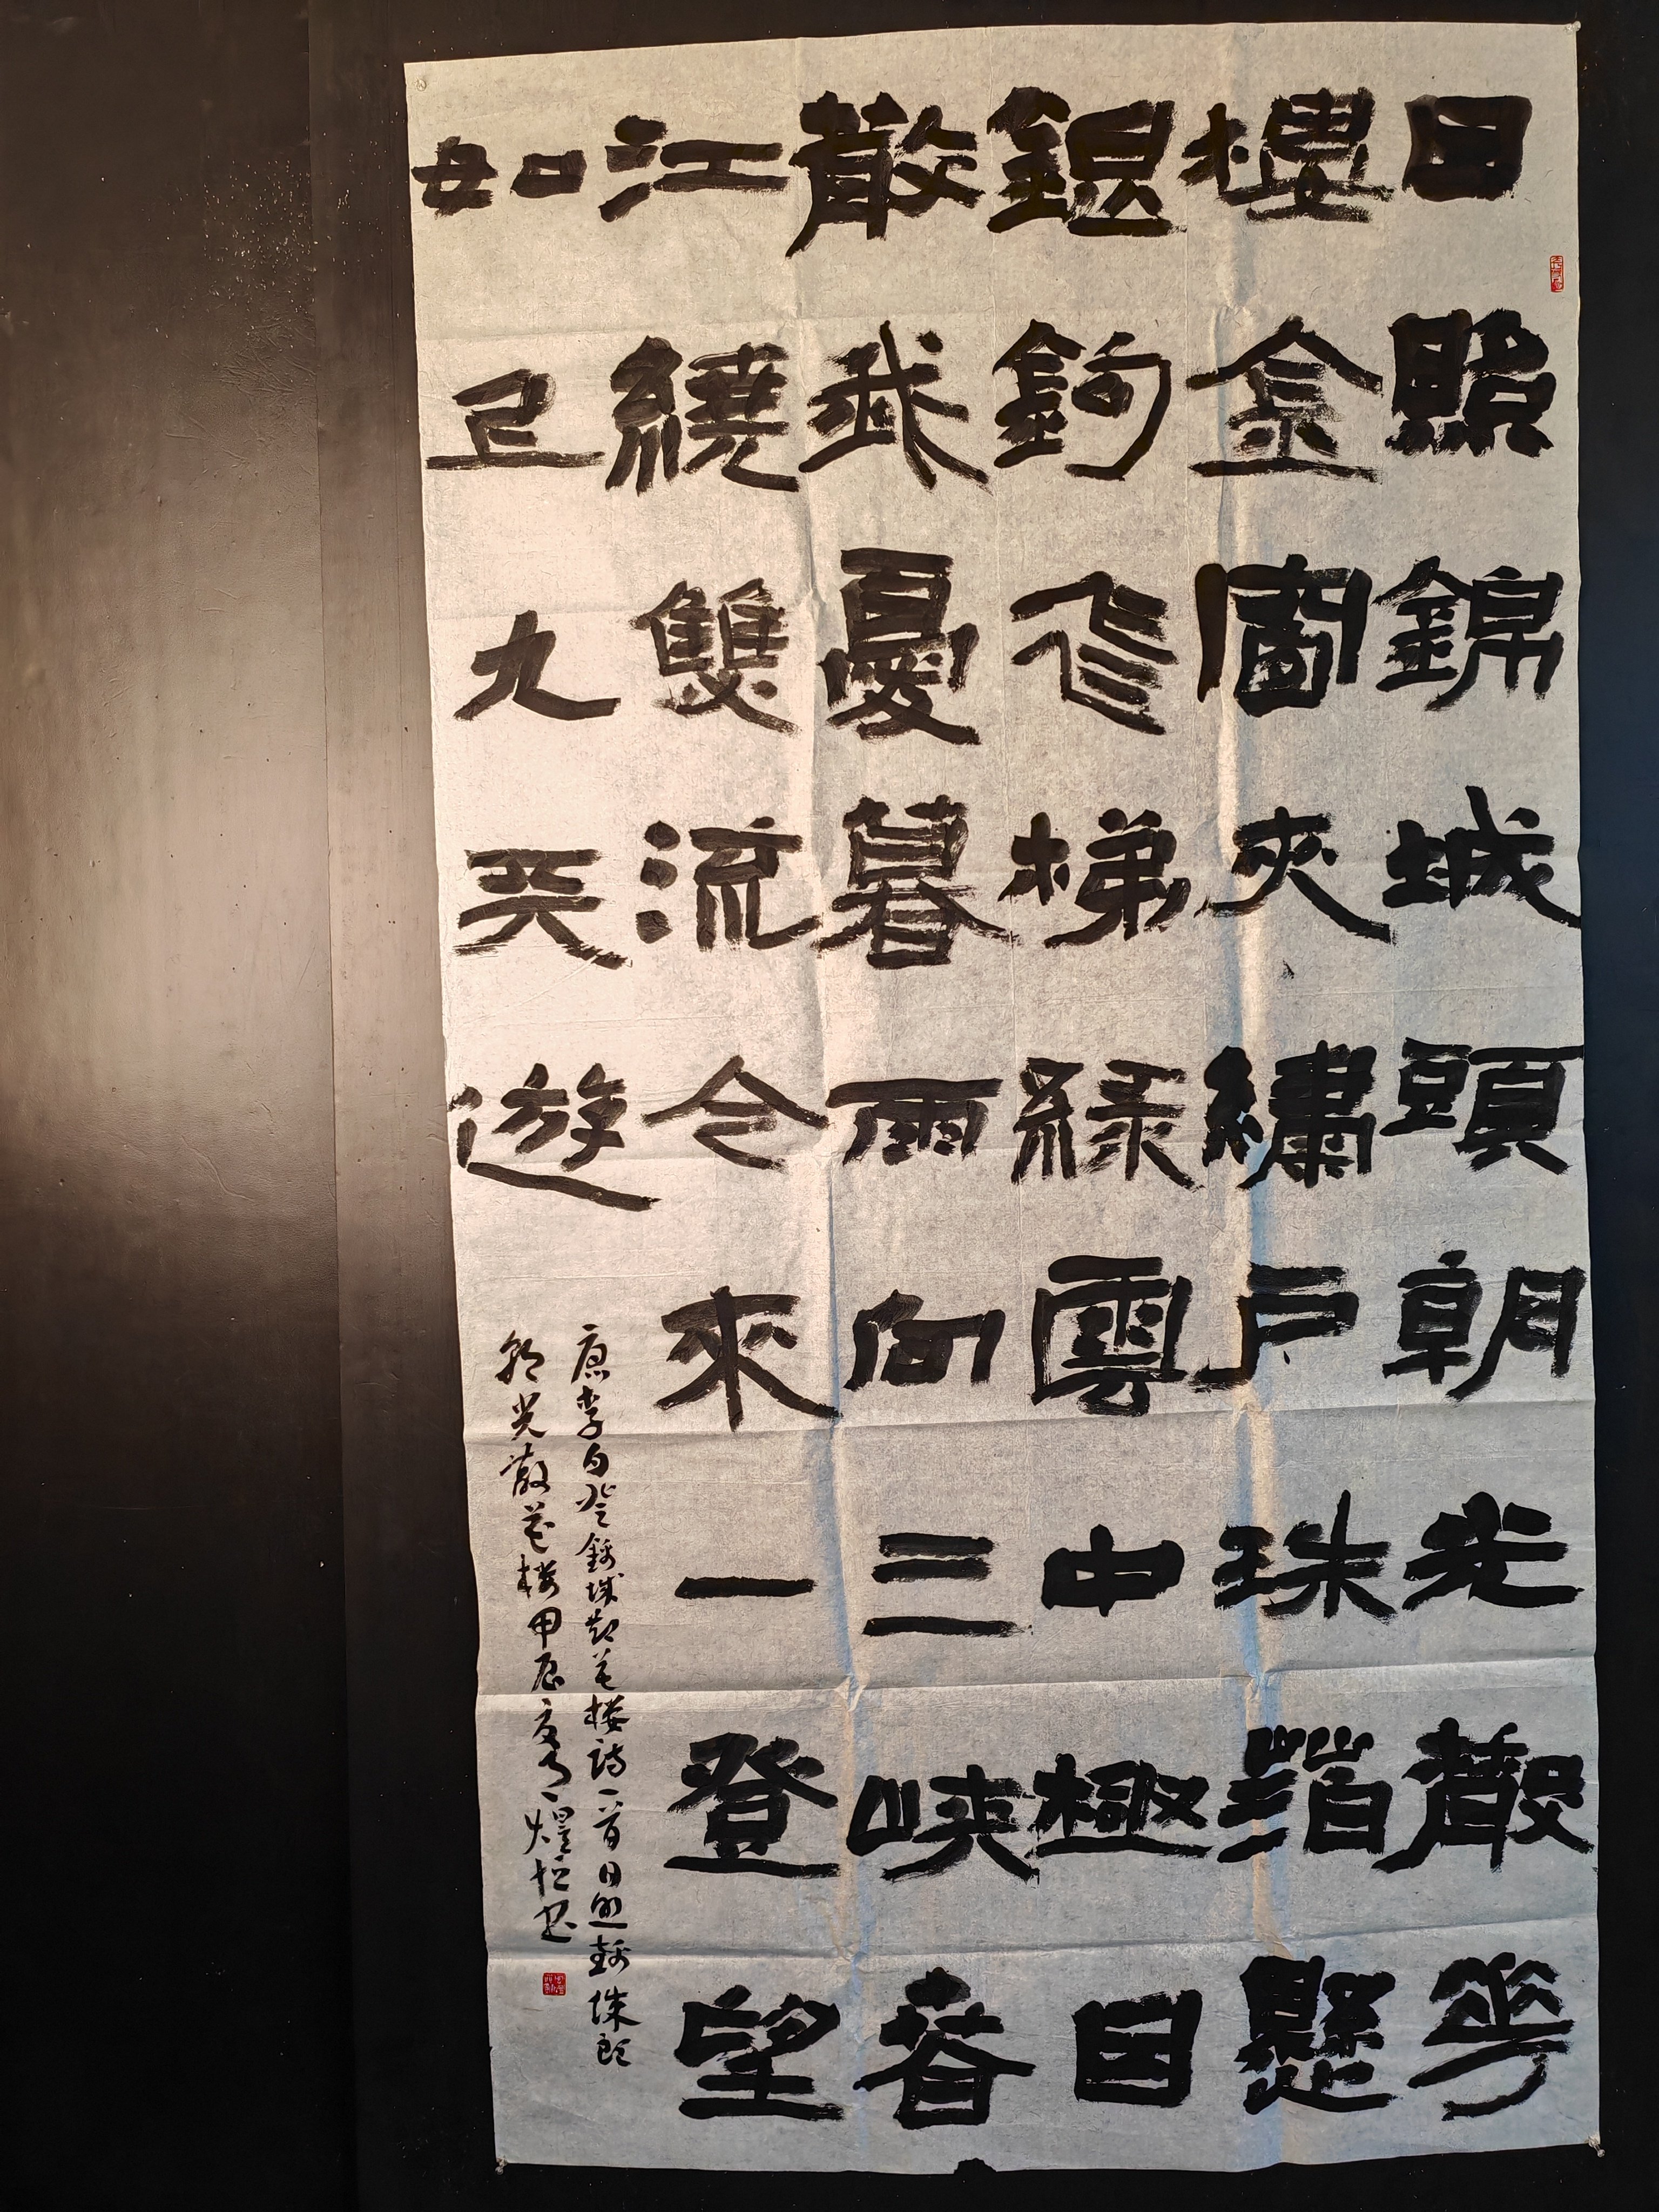 日照錦城頭朝光散花
樓金窗夾繡戶珠箔懸
銀鉤飛梯綠雲中極目
散我憂暮雨向三峽春
江繞雙流今來一登望
如上九天遊
唐李白登錦城散花楼詩一首日照錦城頭
朝光散花楼甲辰夏月煜恒书